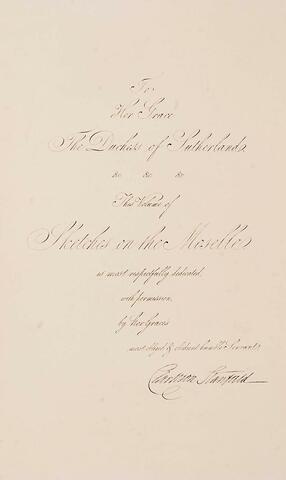 To
Her Grace
The Duchess of Sutherland,
&c. &c. &c.
This Volume of
Sketches on the Moselle,
is most respectfully dedicated,
with permission,
by Her Grace's
most obliged & obedient humble Servant,
Clarkson Stanfield